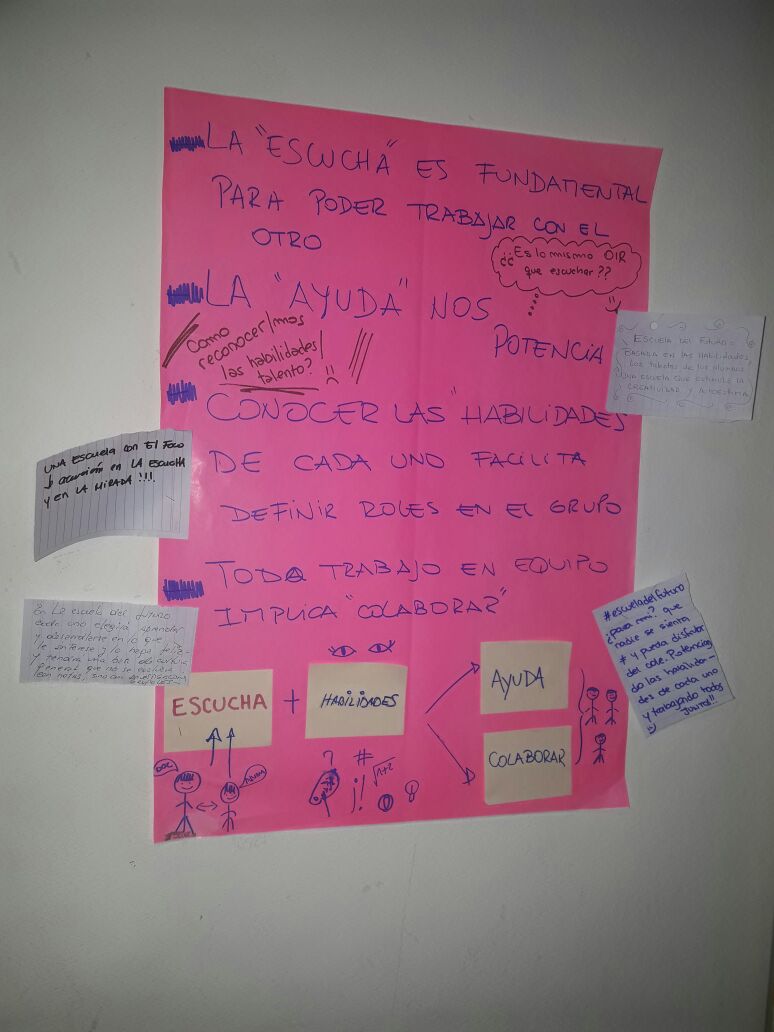 LA "ESCUCHA" ES FUNDAMENTAL
PARA PODER TRABAJAR CON EL
OTRO
¿¿Es lo mismo OIR
que escuchar??
LA "AYUDA" NOS
POTENCIA
Como
reconocer/mos
las habilidades/
talento?
CONOCER LAS "HABILIDADES
DE CADA UNO FACILITA
DEFINIR ROLES EN EL GRUPO
TODA TRABAJO EN EQUIPO
IMPLICA "COLABORAR"
ESCUCHA + HABILIDADES
AYUDA
COLABORAR
DOC
ESCUELA DEL FUTURO:
BASADA EN LAS HABILIDADES,
LOS TALENTOS DE LOS ALUMNOS
UNA ESCUELA QUE ESTIMULE LA
CREATIVIDAD Y AUTOESTIMA
UNA ESCUELA CON EL FOCO
EN LA ESCUCHA
Y EN LA MIRADA!!!
En la escuela del futuro
cada uno elegirá aprender
y desarrollarse en lo que
le interese y lo haga feliz
y tendrá una
general que no se evaluará
con notas, sino con
#escueladelfuturo
¿para mi? que
nadie se sienta
# y pueda disfrutar
del cole. Potencian
do las habilida-
des de cada uno
y trabajando todos
JUNTOS!!
? #
¡!! √1+2